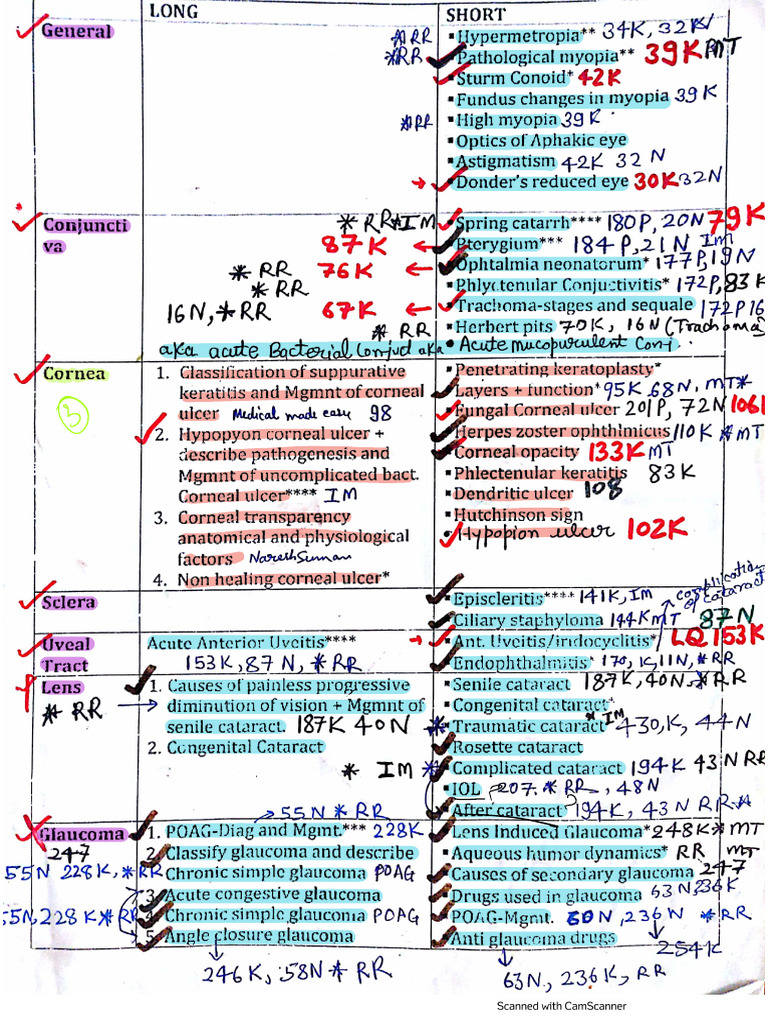 LONG
SHORT
General
*RR ▪Hypermetropia** 34K, 32N
*RR ▪Pathological myopia** 39K PMT
▪Sturm Conoid* 42K
▪Fundus changes in myopia 39K
*RR ▪High myopia 39K
▪Optics of Aphakic eye
▪Astigmatism 42K 32N
→ ▪Donder's reduced eye 30K 32N
Conjuncti
va
*RR*IM ▪Spring catarrh**** 180P, 20N 79K
87K ← ▪Pterygium*** 184P, 21N Im
*RR 76K ← ▪Ophtalmia neonatorum* 177P, 19N
*RR ▪Phlyctenular Conjuctivitis* 172P, 83K
16N, *RR 67K ← ▪Trachoma-stages and sequale 172P 16
*RR ▪Herbert pits 70K, 16N (Trachoma)
aka acute Bacterial Conjud aka • Acute mucopurulent Conj.
Cornea
3
1. Classification of suppurative
keratitis and Mgmnt of corneal
ulcer Medical made easy 98
2. Hypopyon corneal ulcer +
describe pathogenesis and
Mgmnt of uncomplicated bact.
Corneal ulcer**** IM
3. Corneal transparency
anatomical and physiological
factors NareshSuman
4. Non healing corneal ulcer*
▪Penetrating keratoplasty*
▪Layers + function* 95K 68N, MT*
▪Fungal Corneal ulcer 201P, 72N 106K
▪Herpes zoster ophthimicus 110K *MT
▪Corneal opacity 133K MT
▪Phlectenular keratitis 83K
▪Dendritic ulcer 108
▪Hutchinson sign
▪Hypopion ulcer 102K
Sclera
▪Episcleritis**** 141K, IM
▪Ciliary staphyloma 144K MT
complication
of cataract
87N
Uveal
Tract
Acute Anterior Uveitis****
153K, 87N, *RR
→ ▪Ant. Uveitis/iridocyclitis* LQ 153K
▪Endophthalmitis* 170, K, 11N, *RR
Lens
*RR →
1. Causes of painless progressive
diminution of vision + Mgmnt of
senile cataract. 187K 40N
2. Congenital Cataract
* IM
▪Senile cataract 187K, 40N, *RR
▪Congenital cataract*
▪Traumatic cataract* *IM 430, K, 44N
▪Rosette cataract
▪Complicated cataract 194K 43N RR
▪IOL 207. *RR, 48N
▪After cataract 194K, 43N RR*
Glaucoma
247
→ 55N *RR
1. POAG-Diag and Mgmt.*** 228K
2. Classify glaucoma and describe
55N 228K, *RR Chronic simple glaucoma POAG
3. Acute congestive glaucoma
55N, 228K *RR 4. Chronic simple glaucoma POAG
5. Angle closure glaucoma
246K, 58N *RR
▪Lens Induced Glaucoma* 248K* MT
▪Aqueous humor dynamics* RR MT
▪Causes of secondary glaucoma 247
▪Drugs used in glaucoma 63N, 236K
▪POAG-Mgmt. 60N, 236N *RR
▪Anti glaucoma drugs
254K
63N, 236K, RR
Scanned with CamScanner